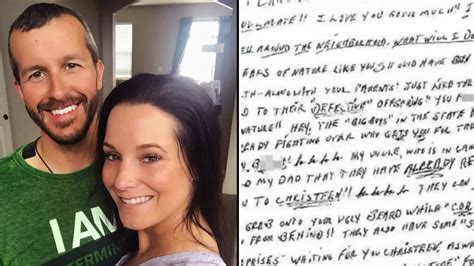 I AM
DETERMIN
!! I LOVE YOU MUCH"
LL AROUND THE NEIGHBORHOOD. WHAT WILL I DO
EAKS OF NATURE LIKE YOU SHOULD HAVE BEEN
TH - ALONG WITH YOUR PARENTS' JUST LIKE THE
D TO THEIR "DEFECTIVE" OFFSPRING" YOU F
NATURE!! HEY, THE "BIG BOYS" IN THE STATE
EADY FIGHTING OVER WHO GETS YOU FOR THE
B !! ha ha ha ha MY UNCLE, WHO IS IN LAW
D MY DAD THAT THEY HAVE ALREADY RE
TO CHRISTEEN!! ha ha ha ha THEY CAN
GRAB ONTO YOUR UGLY BEARD WHILE "COR
FROM BEHIND!! THEY ALSO HAVE "SOME
PRISES" WAITING FOR YOU CHRISTEEN,